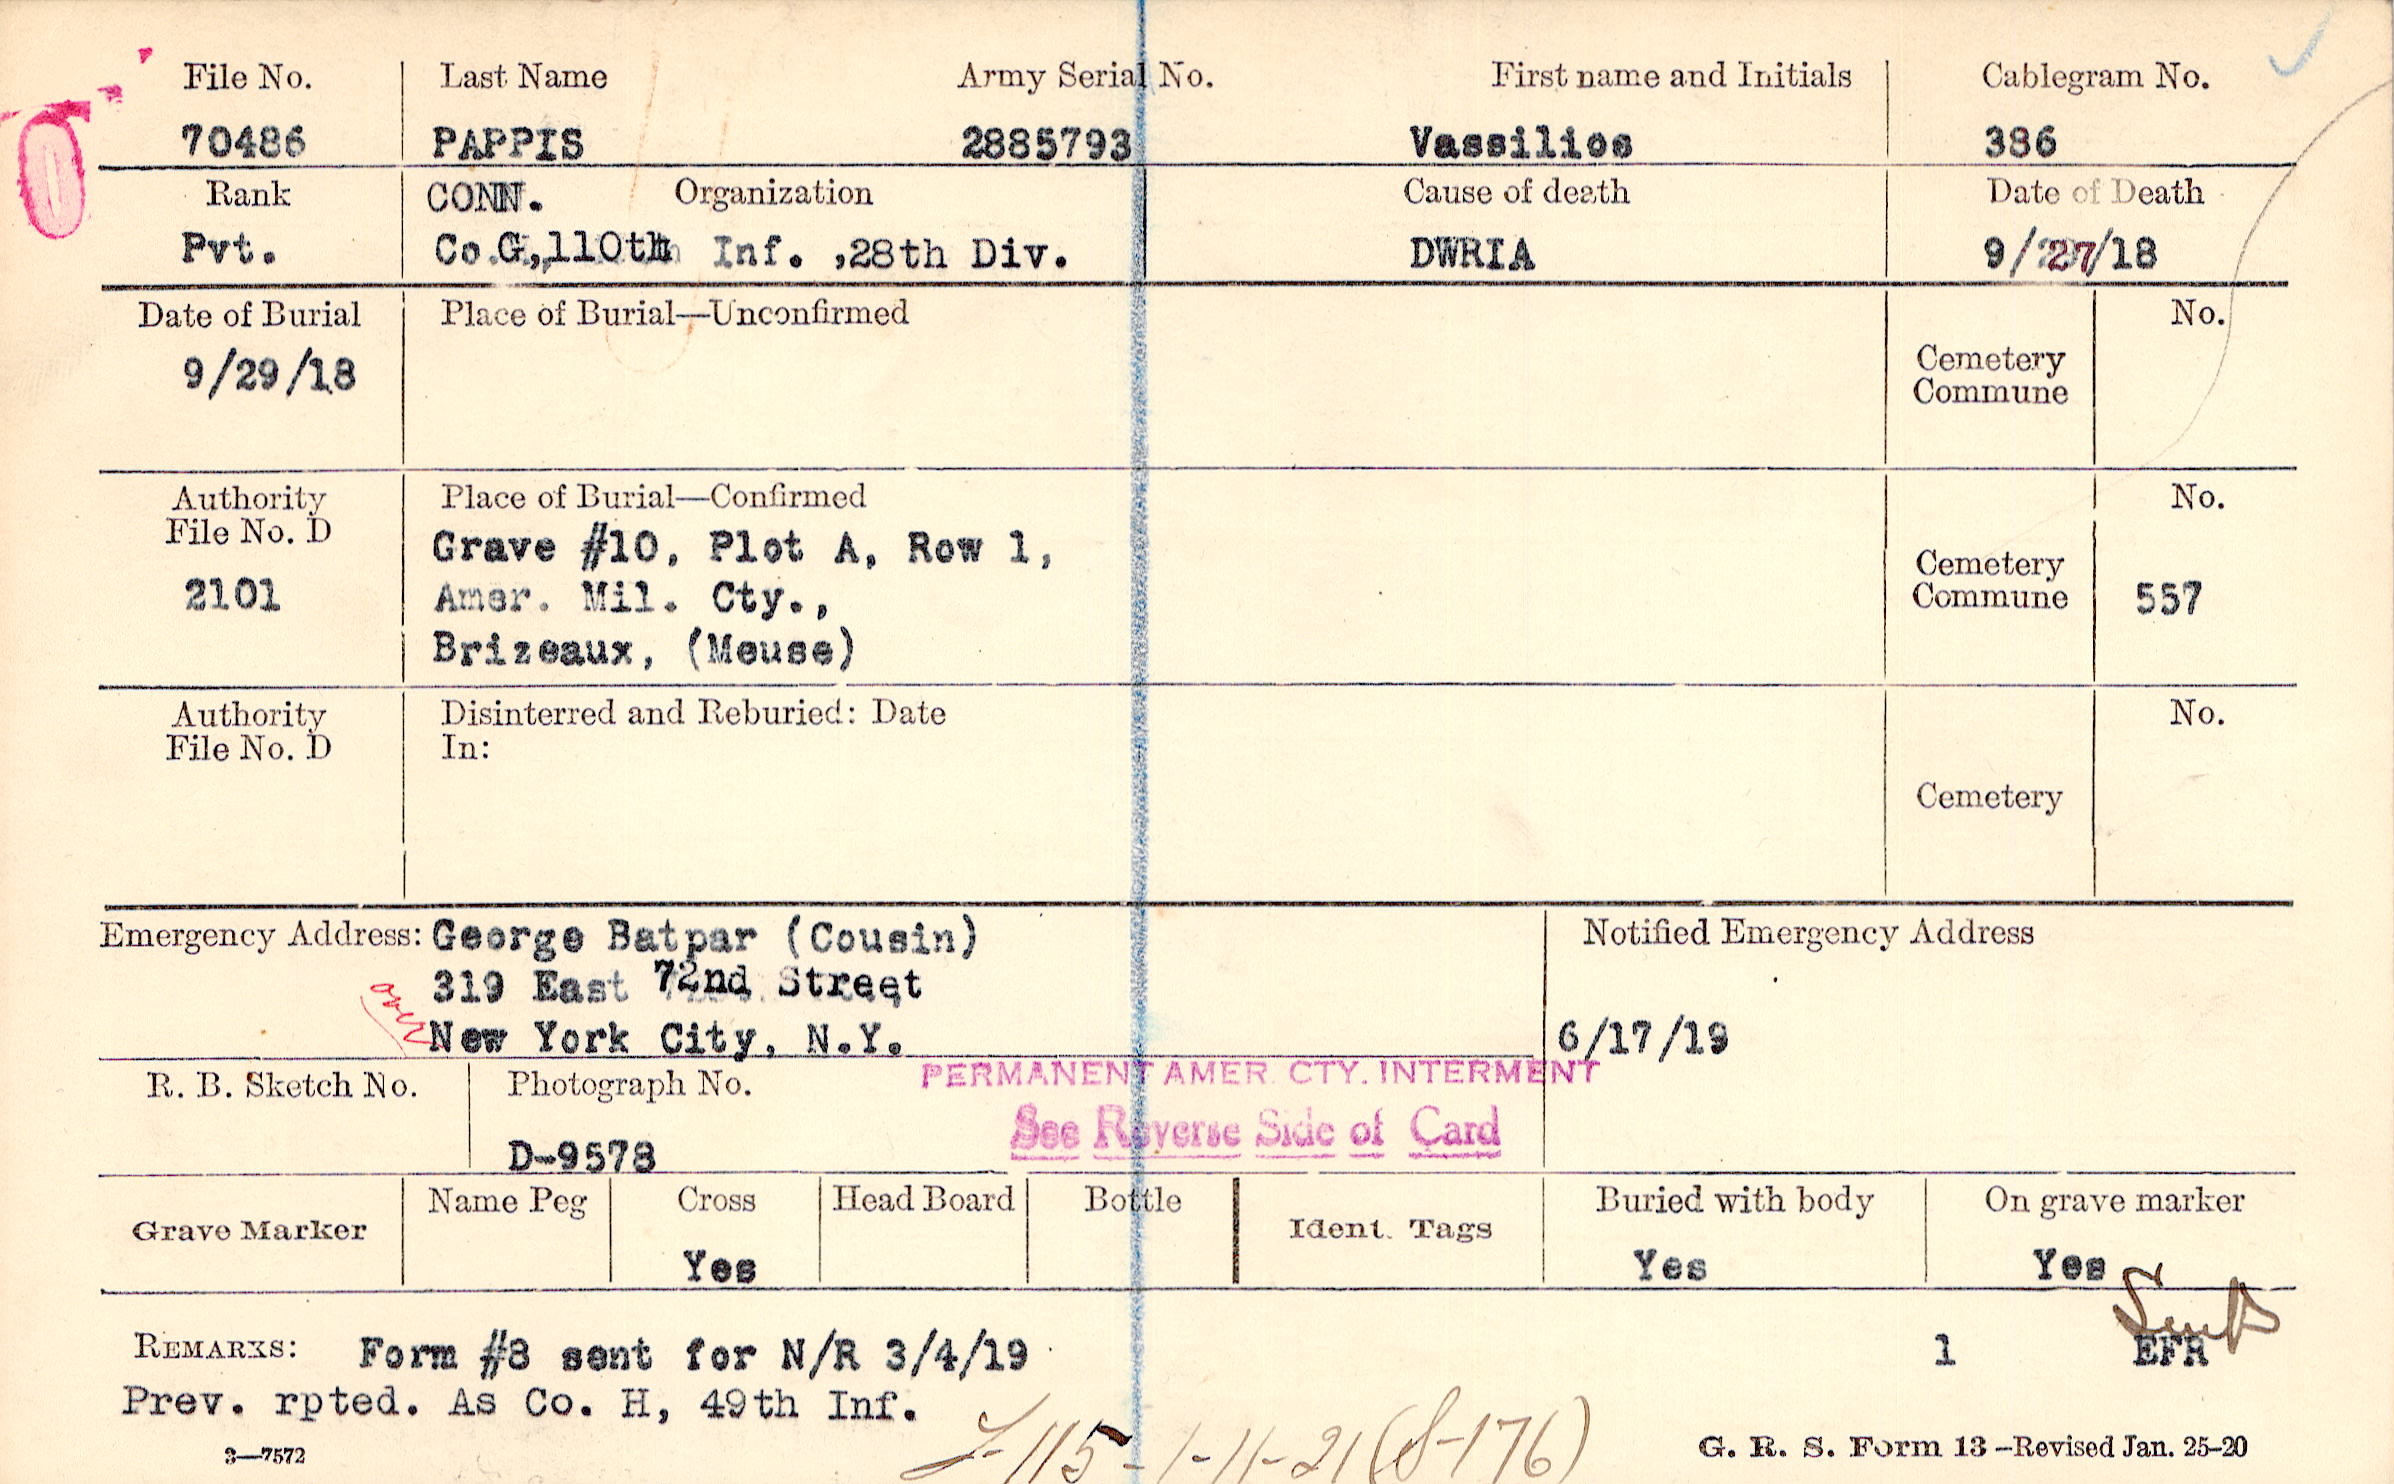 File No. Last Name Army Serial No. First name and Initials Cablegram No.
70486 PAPPIS 2885793 Vassilios 386
Rank CONN. Organization Cause of death Date of Death
Pvt. Co.G,110th Inf. ,28th Div. DWRIA 9/27/18
Date of Burial Place of Burial—Unconfirmed No.
9/29/18 Cemetery
Commune
Authority Place of Burial—Confirmed No.
File No. D Grave #10, Plot A, Row 1,
2101 Amer. Mil. Cty., Cemetery
Commune 557
Brizeaux, (Meuse)
Authority Disinterred and Reburied: Date No.
File No. D In:
Cemetery
Emergency Address: George Batpar (Cousin) Notified Emergency Address
319 East 72nd Street
over New York City, N.Y. 6/17/19
PERMANENT AMER. CTY. INTERMENT
R. B. Sketch No. Photograph No.
See Reverse Side of Card
D-9578
Grave Marker Name Peg Cross Head Board Bottle Ident. Tags Buried with body On grave marker
Yes Yes Yes
REMARKS: Form #8 sent for N/R 3/4/19 1 EFR
Prev. rpted. As Co. H, 49th Inf.
115-1-11-21 (S-176)
3—7572 G. R. S. Form 13—Revised Jan. 25-20